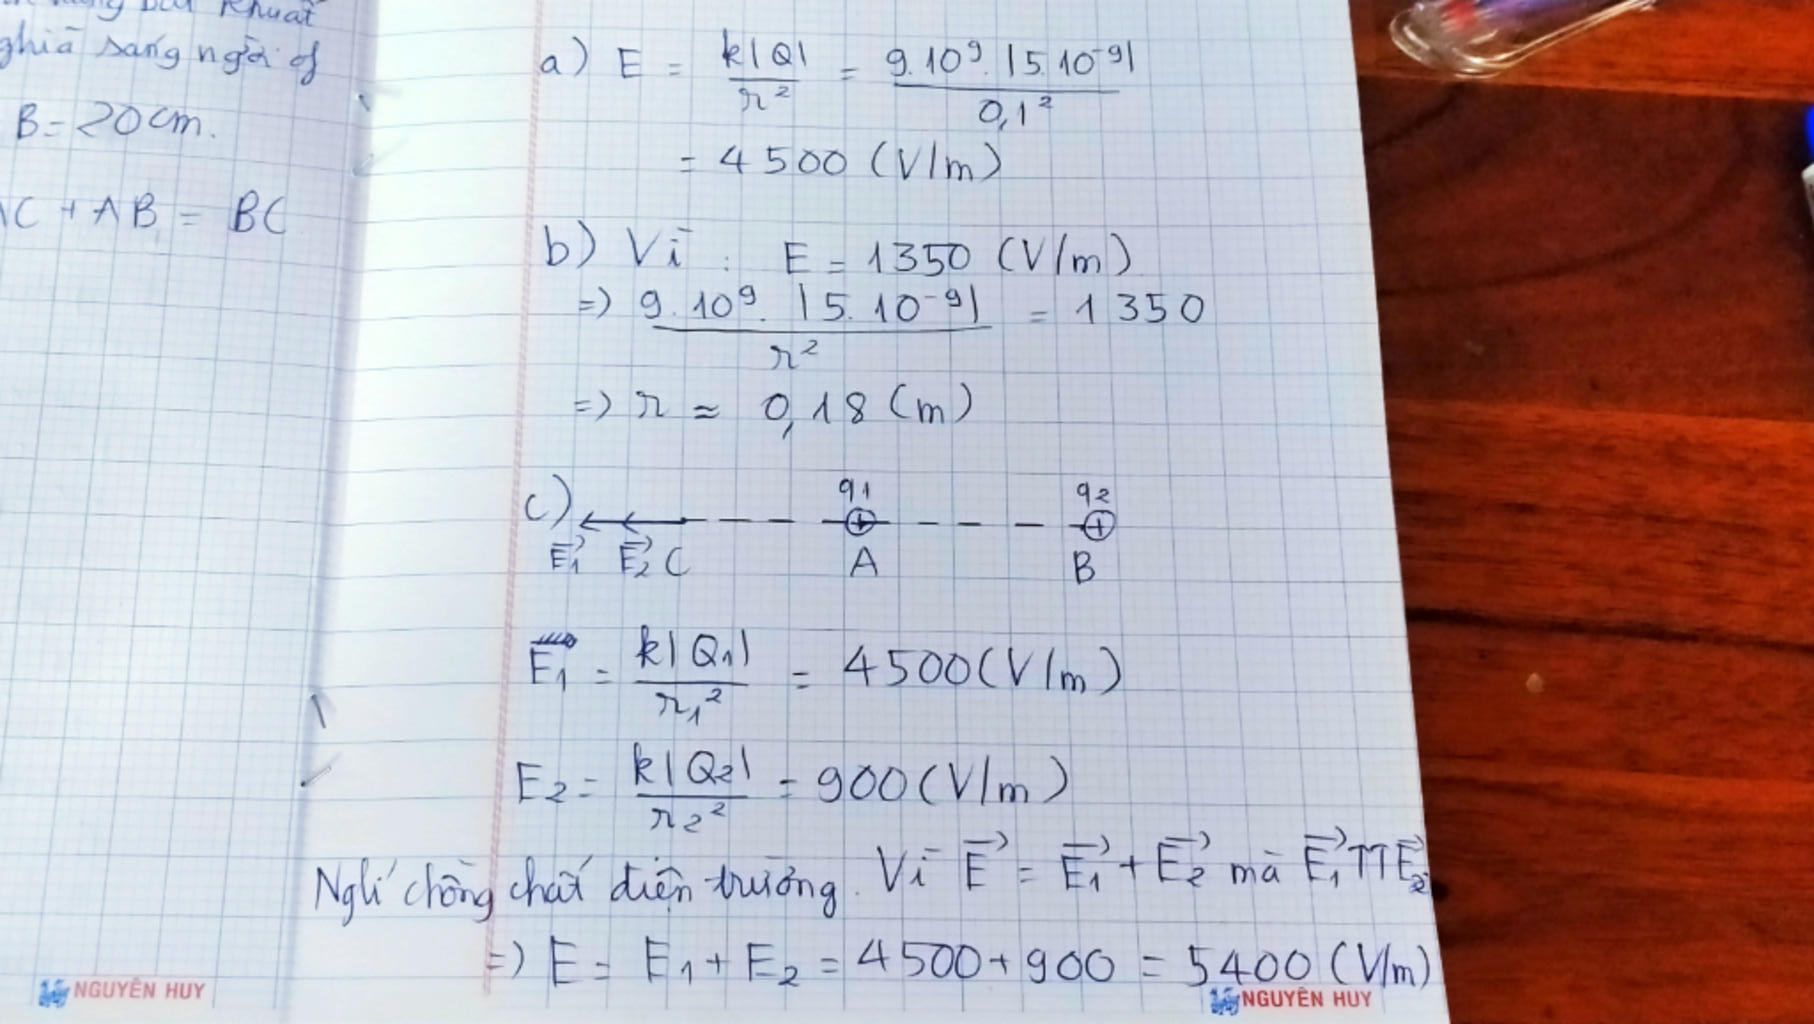 ghiã sang ngời of
B = 20cm.
AC + AB = BC
a) E = k|Q| / r² = 9.10⁹.|5.10⁻⁹| / 0,1²
= 4500 (V/m)
b) Vì : E = 1350 (V/m)
=> 9.10⁹.|5.10⁻⁹| / r² = 1350
=> r ≈ 0,18 (m)
c) q1 q2
E₁→ E₂→ C A B
E₁ = k|Q₁| / r₁² = 4500 (V/m)
E₂ = k|Q₂| / r₂² = 900 (V/m)
Nglí chồng chất điện trường. Vì E→ = E₁→ + E₂→ mà E₁→ ↑↑ E₂→
=> E = E₁ + E₂ = 4500 + 900 = 5400 (V/m)
NGUYÊN HUY
NGUYÊN HUY